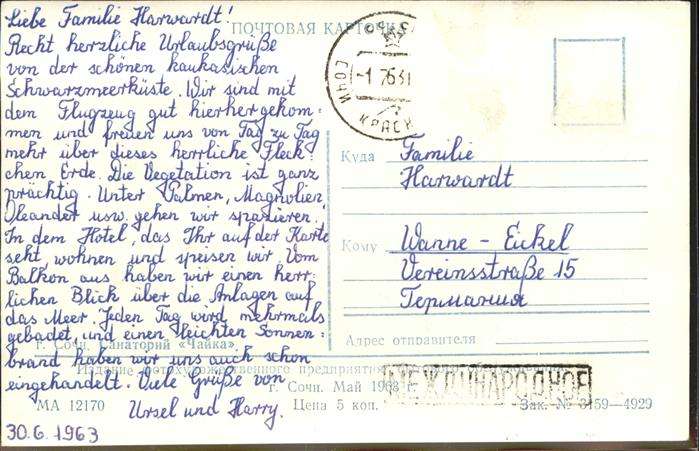 Liebe Familie Harwardt!
Recht herzliche Urlaubsgrüße
von der schönen kaukasischen
Schwarzmeerküste. Wir sind mit
dem Flugzeug gut hierhergekom=
men und freuen uns von Tag zu Tag
mehr über dieses herrliche Fleck=
chen Erde. Die Vegetation ist ganz
prächtig. Unter Palmen, Magnolien,
Oleander usw. gehen wir spazieren.
In dem Hotel, das Ihr auf der Karte
seht, wohnen und speisen wir. Vom
Balkon aus haben wir einen herr=
lichen Blick über die Anlagen auf
das Meer. Jeden Tag wird mehrmals
gebadet und einen leichten Sonnen=
brand haben wir uns auch schon
eingehandelt. Viele Grüße von
Ursel und Harry.
30.6.1963
ПОЧТОВАЯ КАРТОЧКА
СОЧИ
Куда
Familie
Harwardt
Кому
Wanne-Eickel
Vereinsstraße 15
Германия
Адрес отправителя
г. Сочи. Санаторий «Чайка»
Издание фотохудожественного предприятия
г. Сочи. Май 1963 г.
МЕЖДУНАРОДНОЕ
МА 12170
Цена 5 коп.
Зак. № 3159—4929